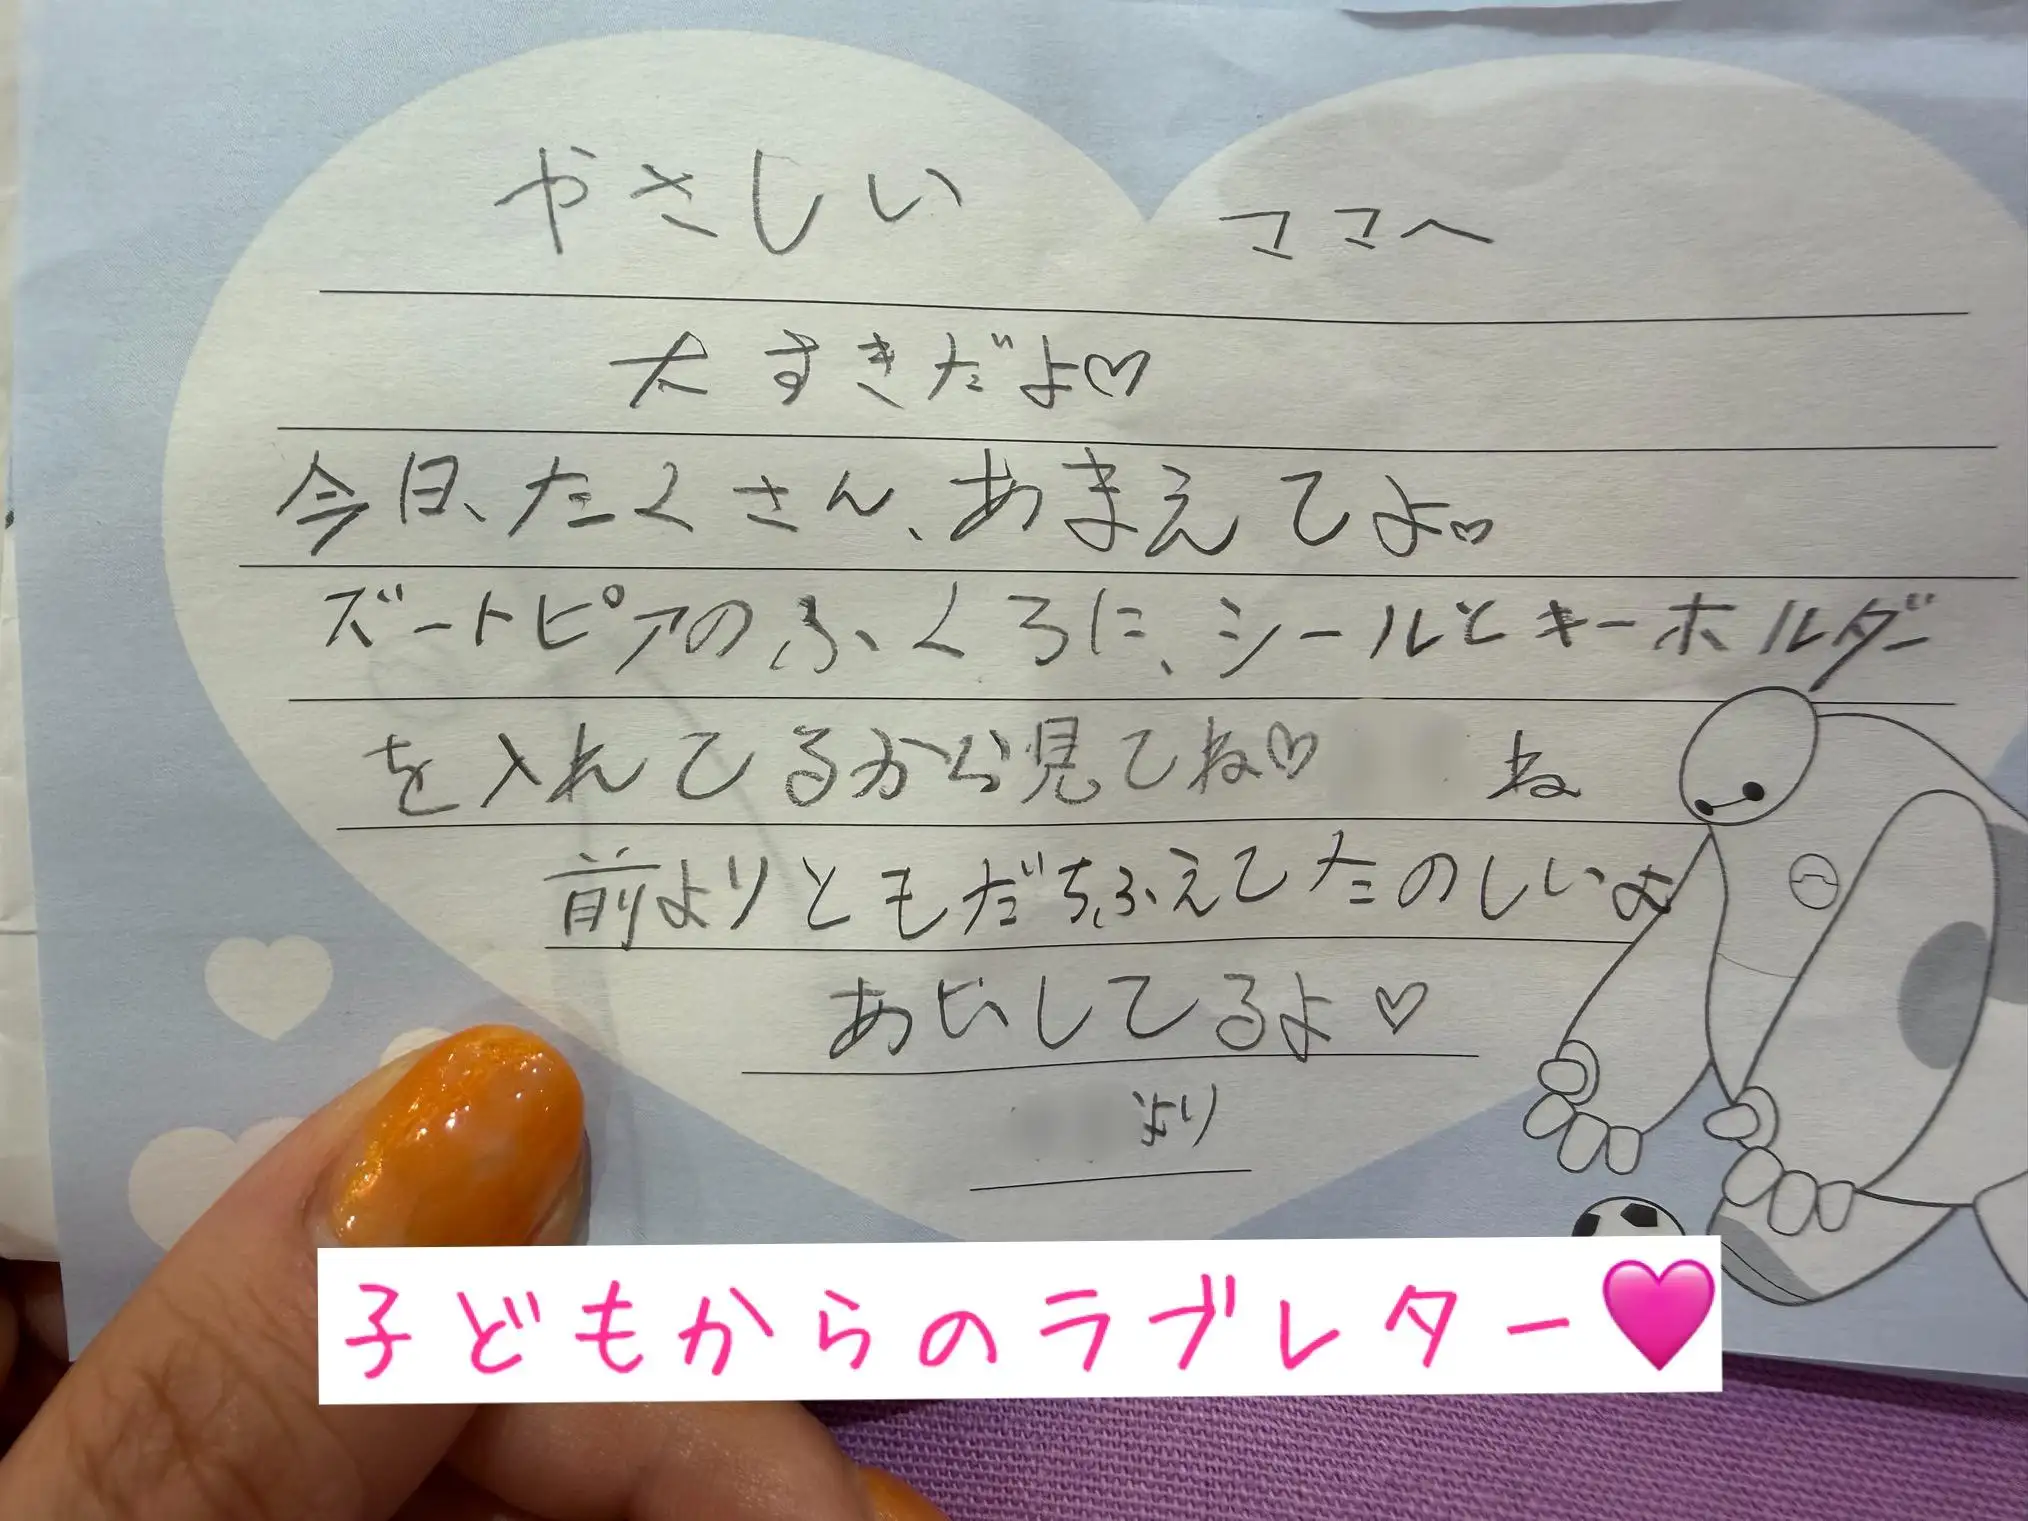 やさしい ママへ
大すきだよ♡
今日、たくさん、あまえてよ♡
ズートピアのふくろに、シールとキーホルダー
を入れてるから見てね♡ ね
前よりともだちふえてたのしいよ
あいしてるよ♡
より
子どもからのラブレター🩷